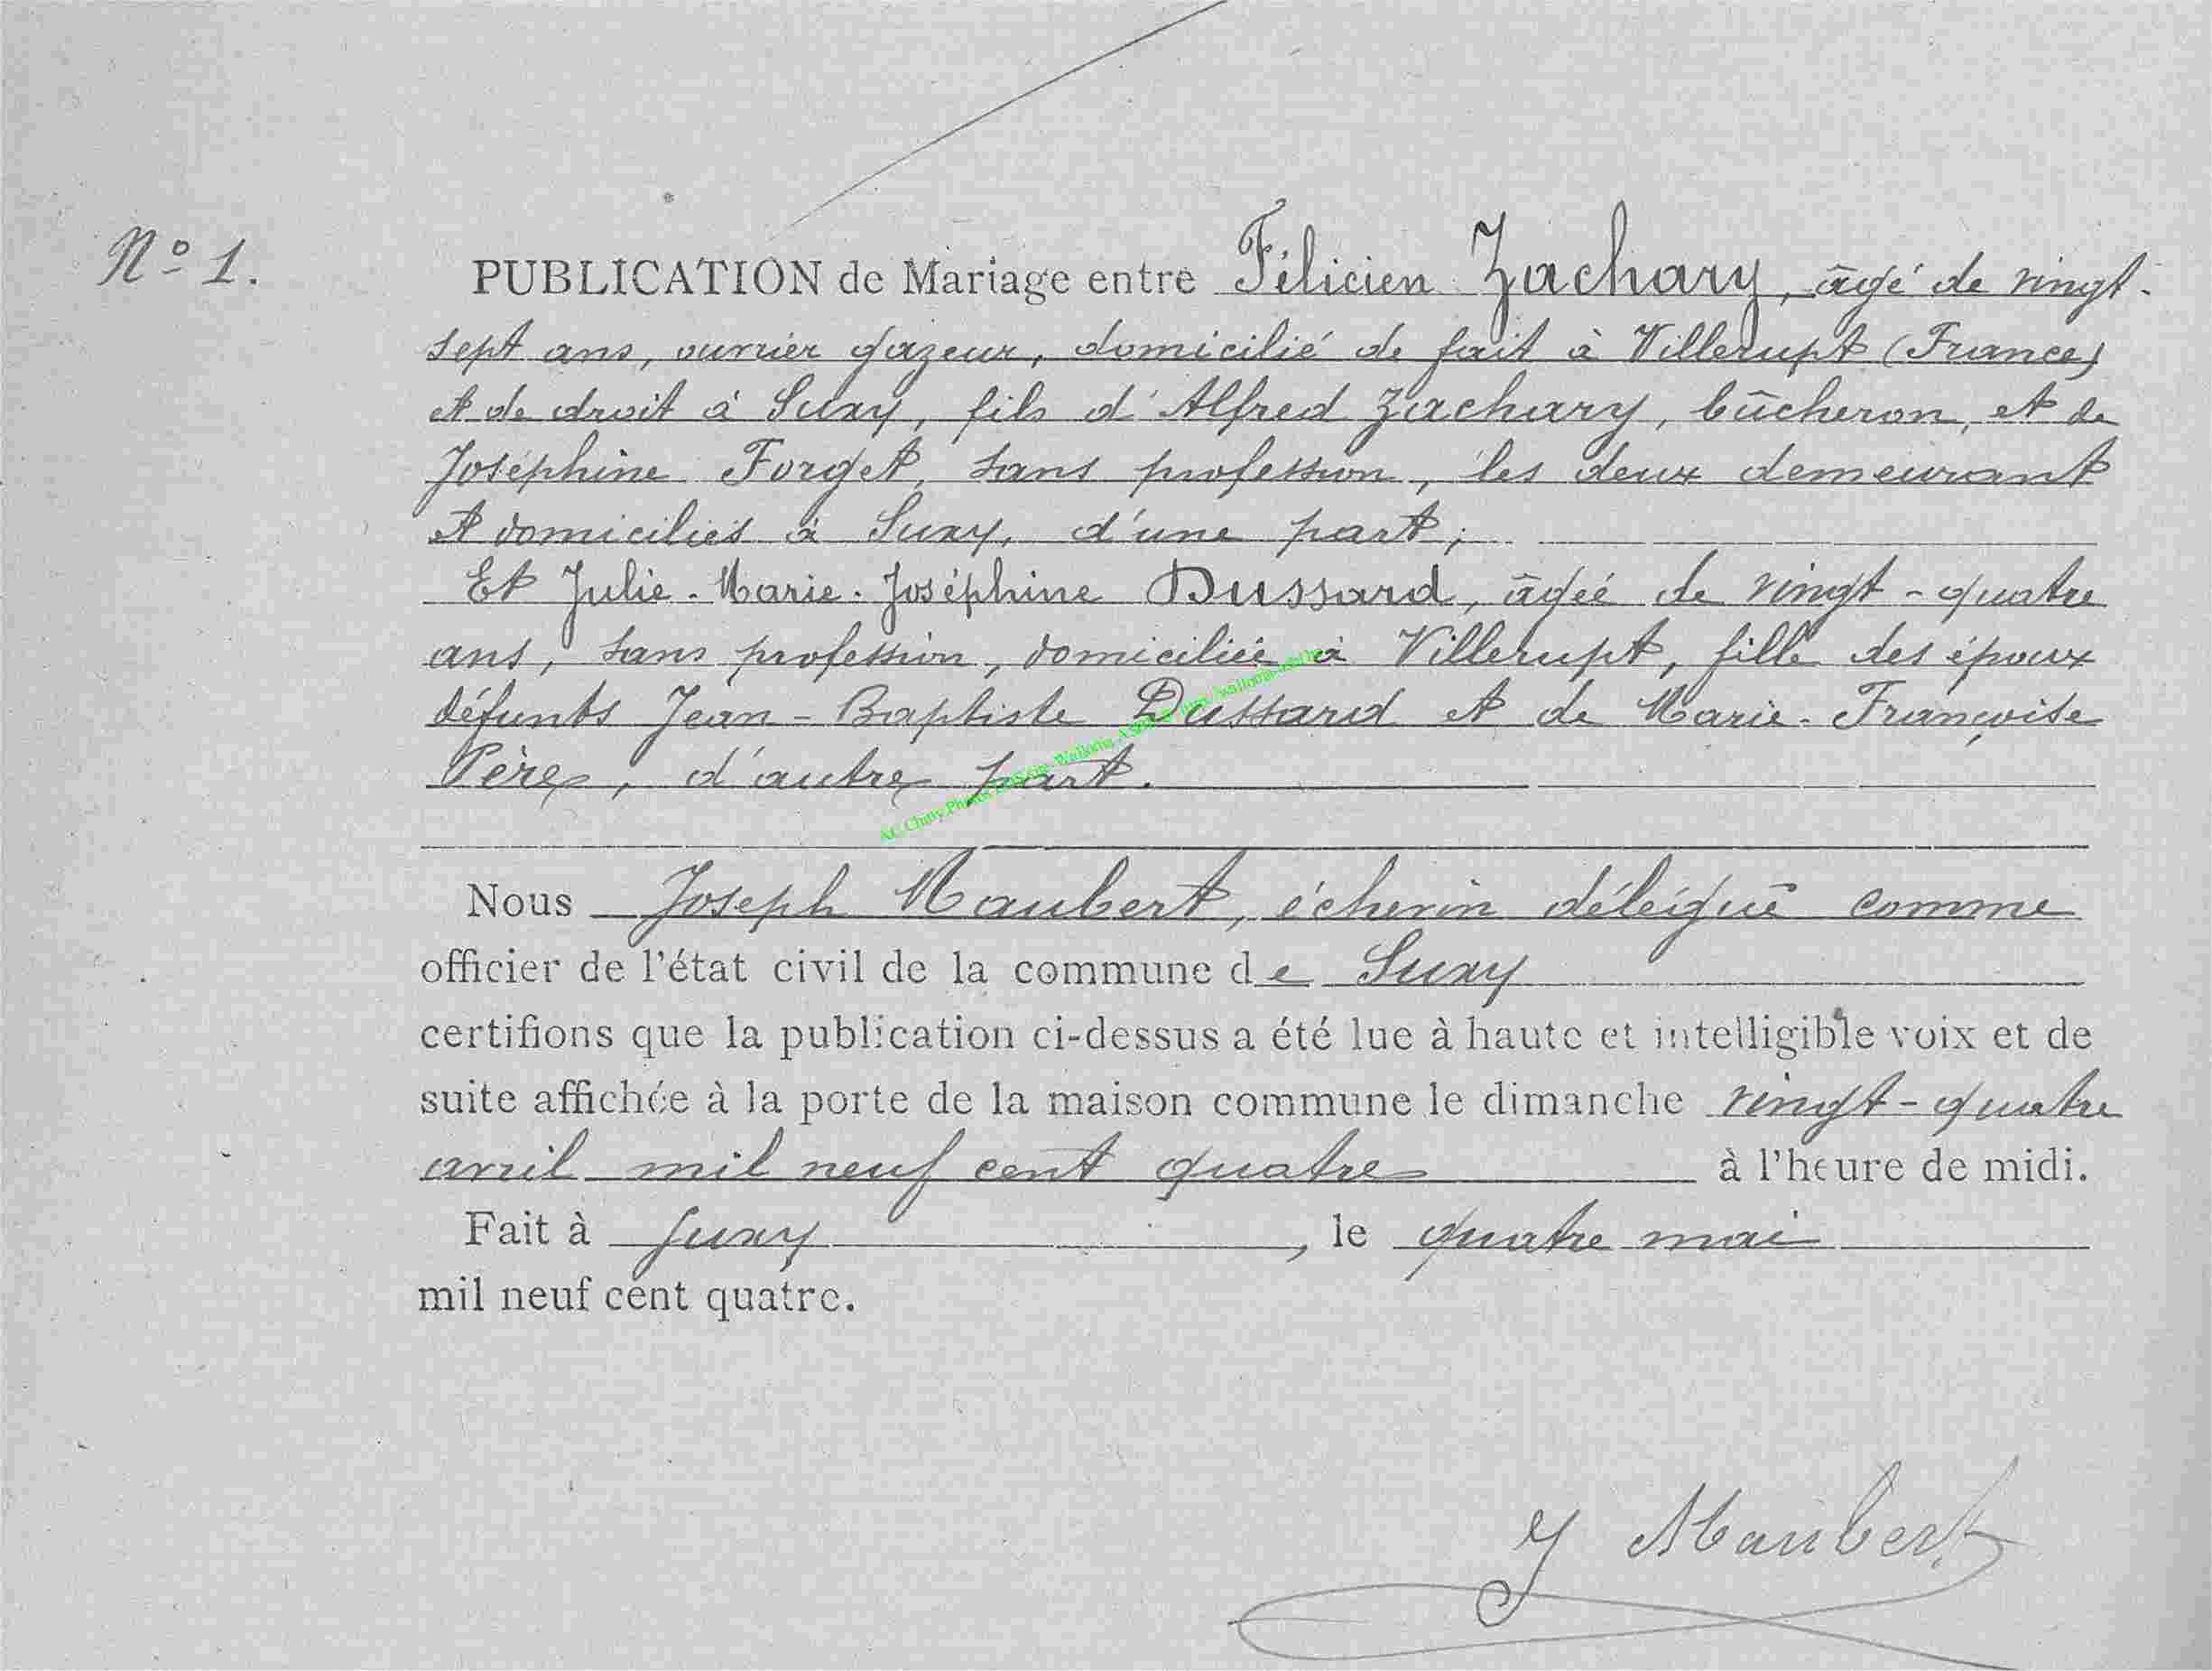 N° 1.
PUBLICATION de Mariage entre Félicien Zachary, âgé de vingt-
sept ans, ouvrier gazeur, domicilié de fait à Villerupt (France)
et de droit à Suxy, fils d'Alfred Zachary, bûcheron, et de
Joséphine Forget, sans profession, les deux demeurant
et domiciliés à Suxy, d'une part;
Et Julie-Marie-Joséphine Dussard, âgée de vingt-quatre
ans, sans profession, domiciliée à Villerupt, fille des époux
défunts Jean-Baptiste Dussard et de Marie-Françoise
Père, d'autre part.
Nous Joseph Maubert, échevin délégué comme
officier de l'état civil de la commune de Suxy
certifions que la publication ci-dessus a été lue à haute et intelligible voix et de
suite affichée à la porte de la maison commune le dimanche vingt-quatre
avril mil neuf cent quatre à l'heure de midi.
Fait à Suxy, le quatre mai
mil neuf cent quatre.
J Maubert